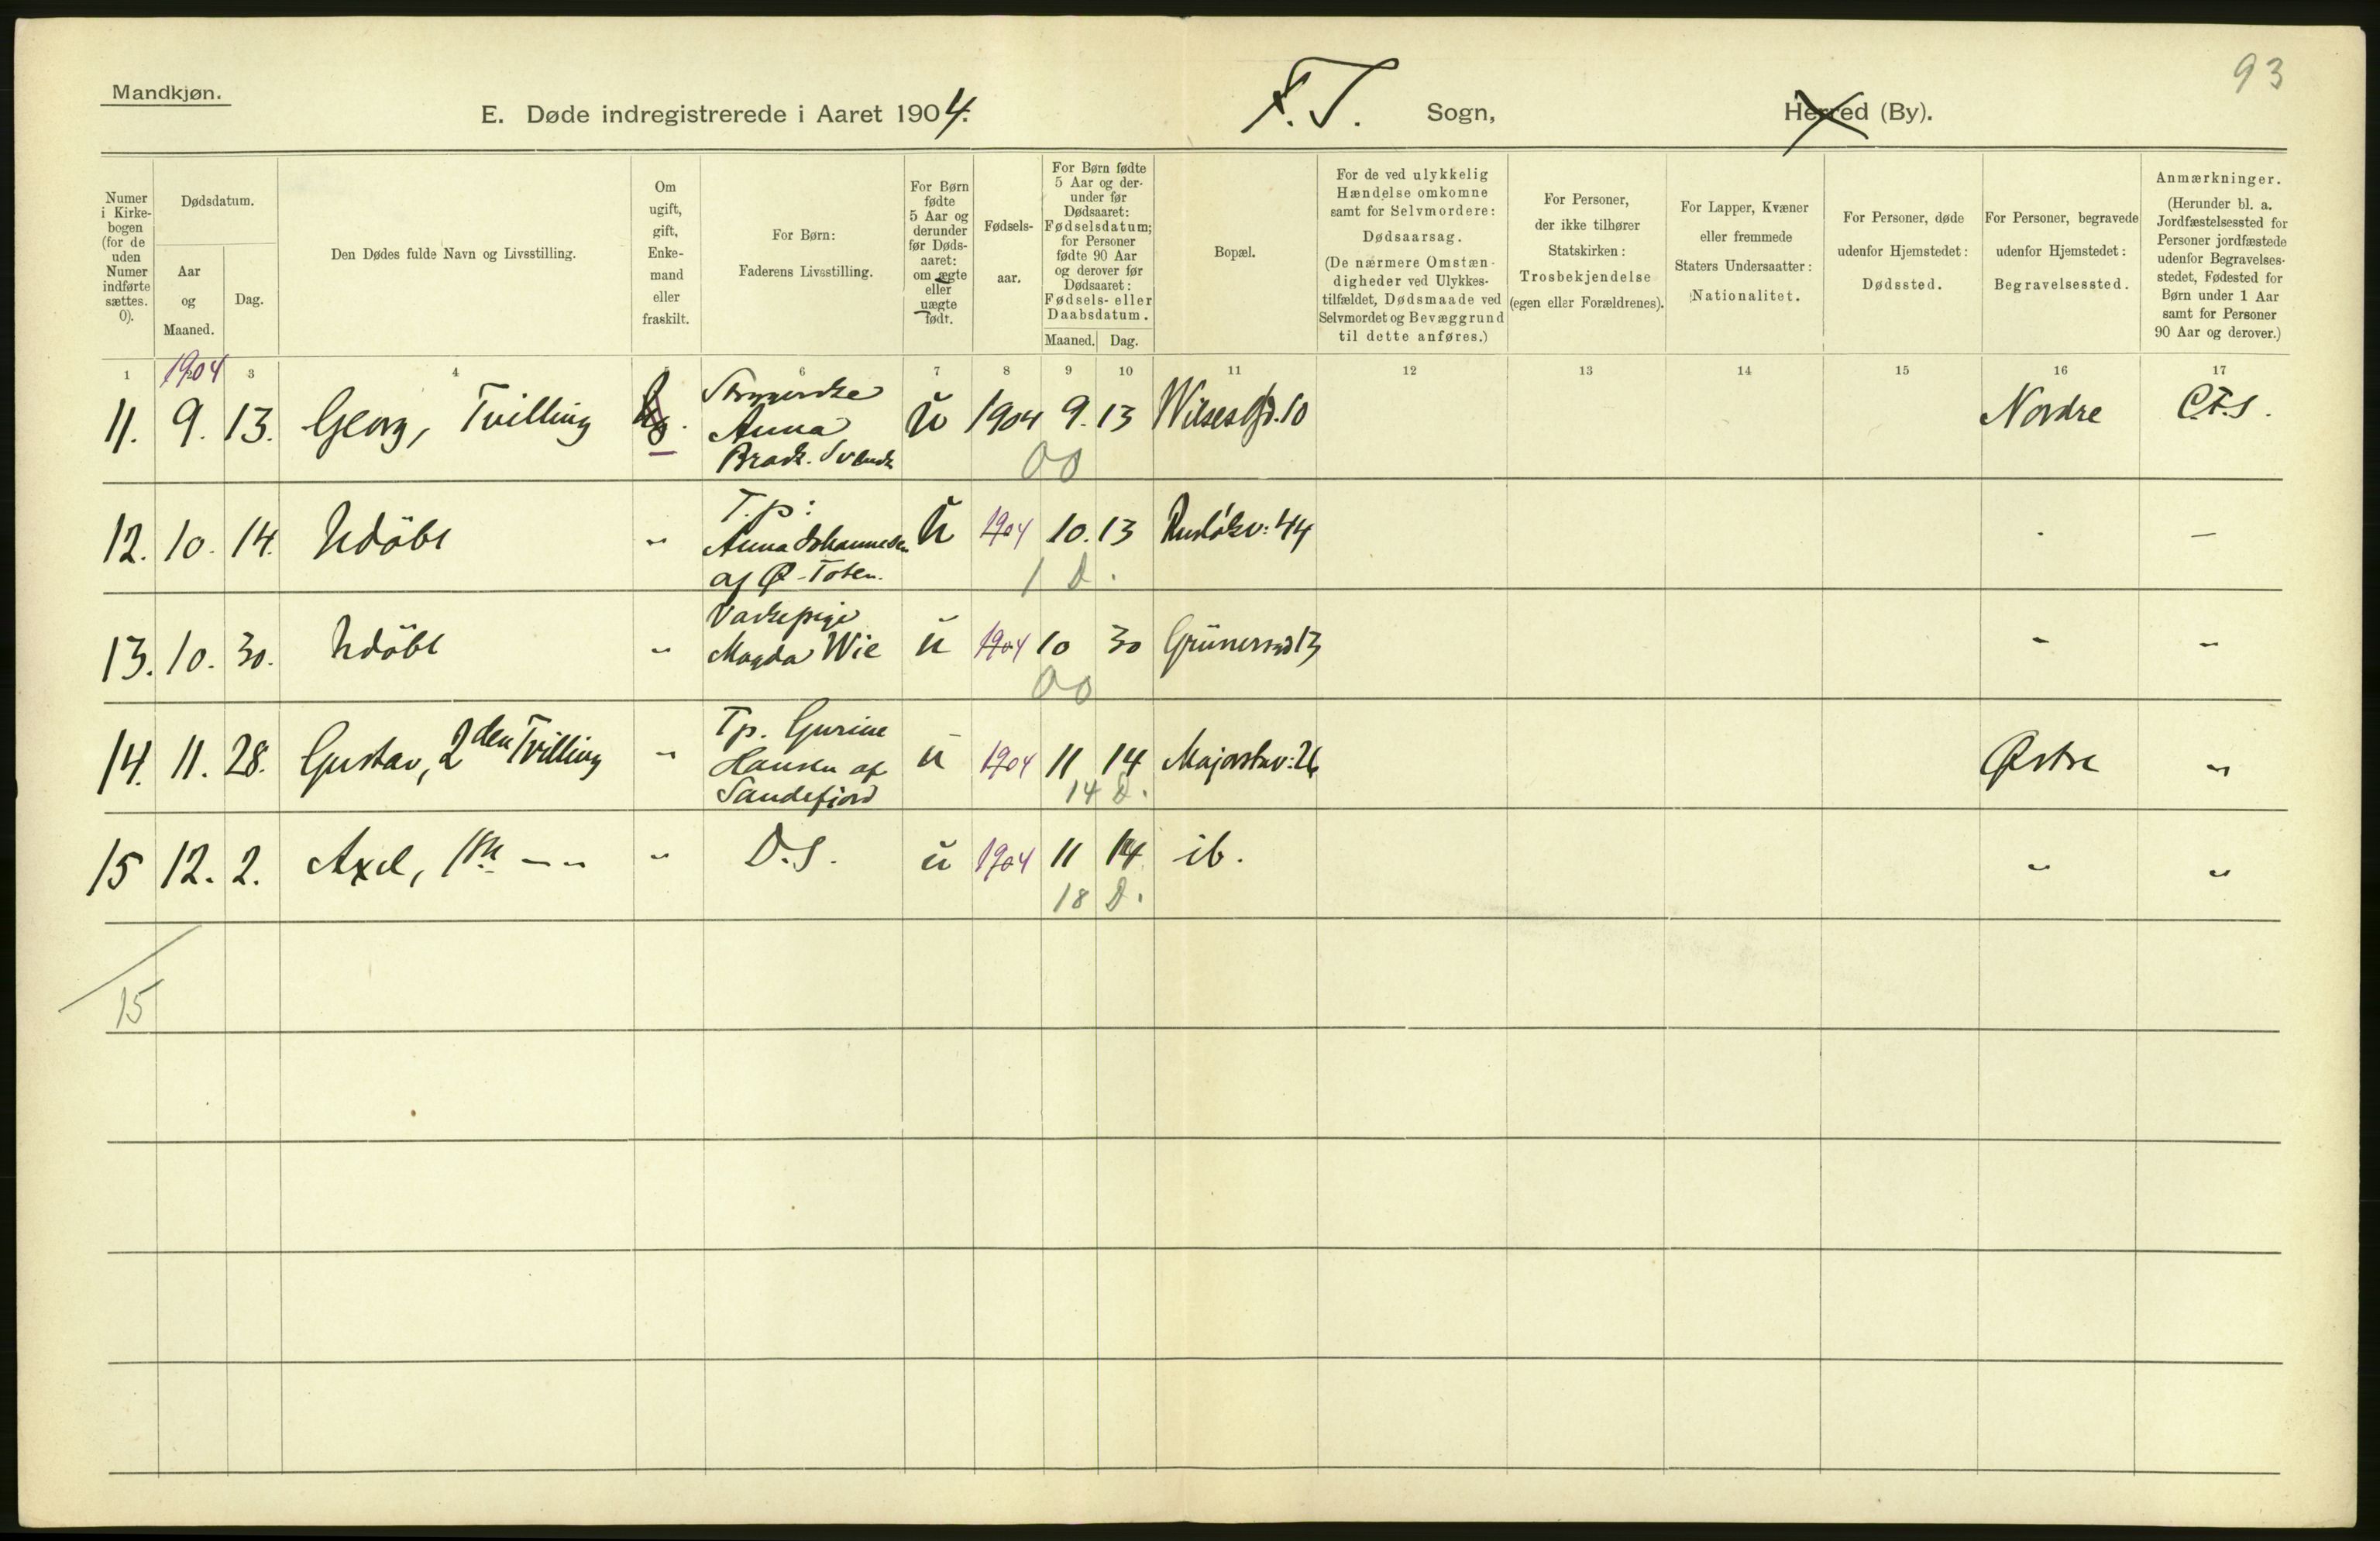 93
Mandkjøn.
E. Døde indregistrerede i Aaret 1904. F.S. Sogn, Herred (By).
Numer i Kirkebogen (for de uden Numer indførte sættes. 0).
Dødsdatum.
Aar og Maaned.
Dag.
Den Dødes fulde Navn og Livsstilling.
Om ugift, gift, Enkemand eller fraskilt.
For Børn: Faderens Livsstilling.
For Børn fødte 5 Aar og derunder før Dødsaaret: om ægte eller uægte født.
Fødselsaar.
For Børn fødte 5 Aar og derunder før Dødsaaret: Fødselsdatum; for Personer fødte 90 Aar og derover før Dødsaaret: Fødsels- eller Daabsdatum.
Maaned. Dag.
Bopæl.
For de ved ulykkelig Hændelse omkomne samt for Selvmordere: Dødsaarsag. (De nærmere Omstændigheder ved Ulykkestilfældet, Dødsmaade ved Selvmordet og Bevæggrund til dette anføres.)
For Personer, der ikke tilhører Statskirken: Trosbekjendelse (egen eller Forældrenes).
For Lapper, Kvæner eller fremmede Staters Undersaatter: Nationalitet.
For Personer, døde udenfor Hjemstedet: Dødssted.
For Personer, begravede udenfor Hjemstedet: Begravelsessted.
Anmærkninger. (Herunder bl. a. Jordfæstelsessted for Personer jordfæstede udenfor Begravelsesstedet, Fødested for Børn under 1 Aar samt for Personer 90 Aar og derover.)
1 1904 3 4 6 7 8 9 10 11 12 13 14 15 16 17
11. 9. 13. Georg, Tvilling Anna ŭ 1904 9. 13 10 Nordre
00
12. 10. 14. Udöbt " T.p: Anna Johannesen af Ø-Toten. ŭ 1904 10. 13 44 - —
1 D.
13. 10. 30. Udöbt " Magda Wie ŭ 1904 10 30 13 - "
00
14. 11. 28. Gustav, 2den Tvilling " Tp. Gurine Hansen af Sandefjord ŭ 1904 11 14 Majorstuv: 26 Østre "
14 D.
15 12. 2. Axel, 1ste —"— " D.S. ŭ 1904 11 14 ib. " "
18 D.
15